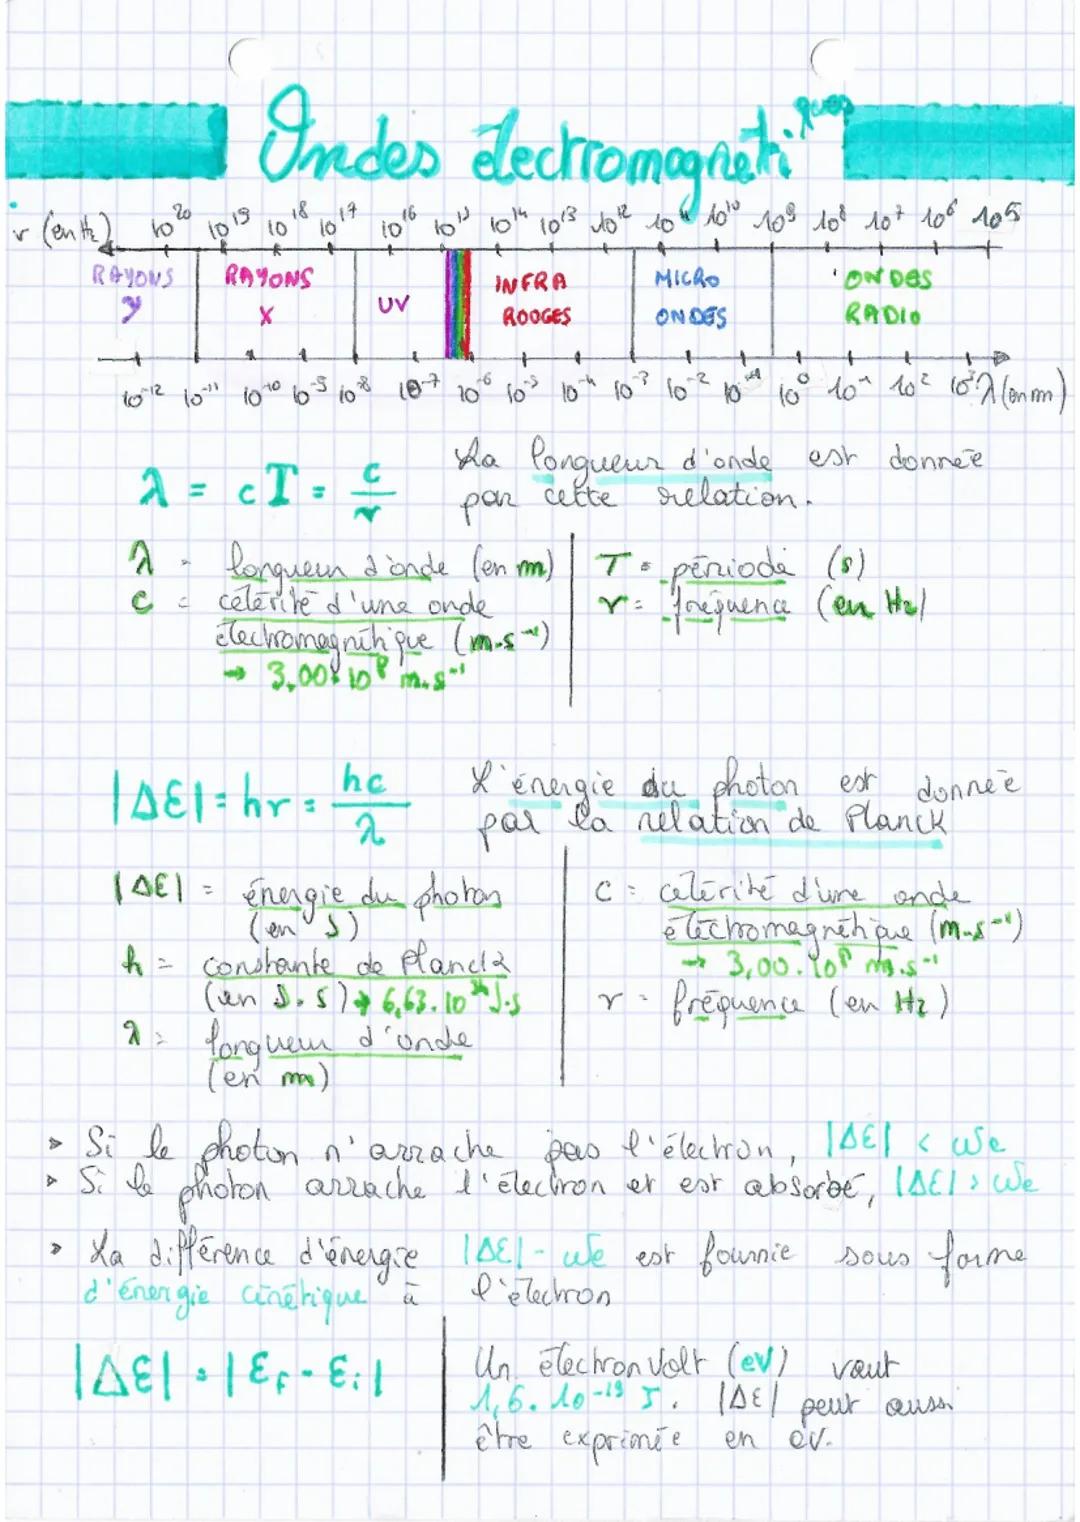 Ondes électromagnétiques
ν (en Hz) 10²⁰ 10¹⁹ 10¹⁸ 10¹⁷ 10¹⁶ 10¹⁵ 10¹⁴ 10¹³ 10¹² 10¹¹ 10¹⁰ 10⁹ 10⁸ 10⁷ 10⁶ 10⁵
RAYONS γ
RAYONS X
UV
INFRA ROOGES
MICRO ONDES
ONDES RADIO
10⁻¹² 10⁻¹¹ 10⁻¹⁰ 10⁻⁹ 10⁻⁸ 10⁻⁷ 10⁻⁶ 10⁻⁵ 10⁻⁴ 10⁻³ 10⁻² 10⁻¹ 10⁰ 10¹ 10² 10³ λ (en m)
λ = cT = c/ν
La longueur d'onde est donnée
par cette relation.
λ = longueur d'onde (en m)
c = célérité d'une onde
électromagnétique (m.s⁻¹)
→ 3,00 × 10⁸ m.s⁻¹
T = période (s)
ν = fréquence (en Hz)
|ΔƐ| = hν = hc/λ
L'énergie du photon est donnée
par la relation de Planck
|ΔƐ| = énergie du photon
(en J)
h = constante de Planck
(en J.s) → 6,63.10³⁴ J.s
λ = longueur d'onde
(en m)
C = célérité d'une onde
électromagnétique (m.s⁻¹)
→ 3,00.10⁸ m.s⁻¹
ν = fréquence (en Hz)
▸ Si le photon n'arrache pas l'électron, |ΔƐ| < We
▸ Si le photon arrache l'électron et est absorbé, |ΔƐ| > We
▸ La différence d'énergie |ΔƐ| - We est fournie sous forme
d'énergie cinétique à l'électron
|ΔƐ| = |Ɛf - Ɛi|
Un électronVolt (eV) vaut
1,6.10⁻¹⁹ J. |ΔƐ| peut aussi
être exprimée en eV.